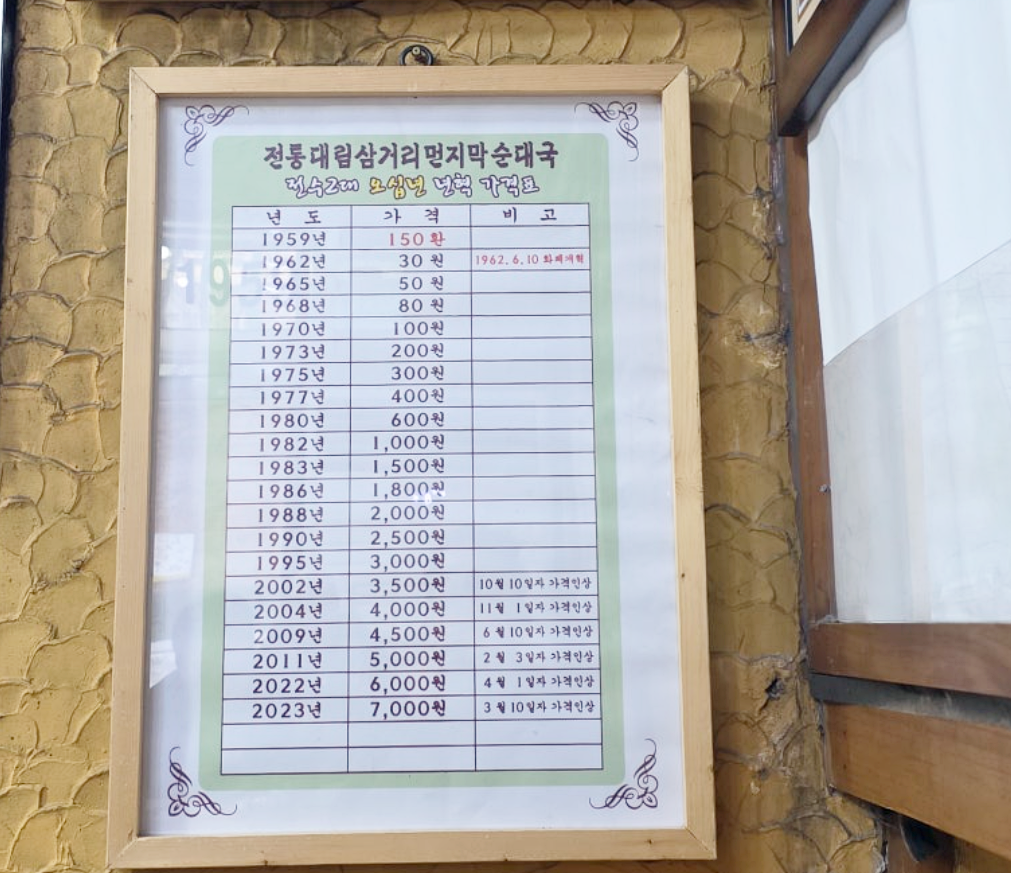 전통대림삼거리먼지막순대국
전수2대 오십년 년혁 가격표
년 도 가 격 비 고
1959년 150환
1962년 30원 1962.6.10 화폐개혁
1965년 50원
1968년 80원
1970년 100원
1973년 200원
1975년 300원
1977년 400원
1980년 600원
1982년 1,000원
1983년 1,500원
1986년 1,800원
1988년 2,000원
1990년 2,500원
1995년 3,000원
2002년 3,500원 10월 10일자 가격인상
2004년 4,000원 11월 1일자 가격인상
2009년 4,500원 6월 10일자 가격인상
2011년 5,000원 2월 3일자 가격인상
2022년 6,000원 4월 1일자 가격인상
2023년 7,000원 3월 10일자 가격인상